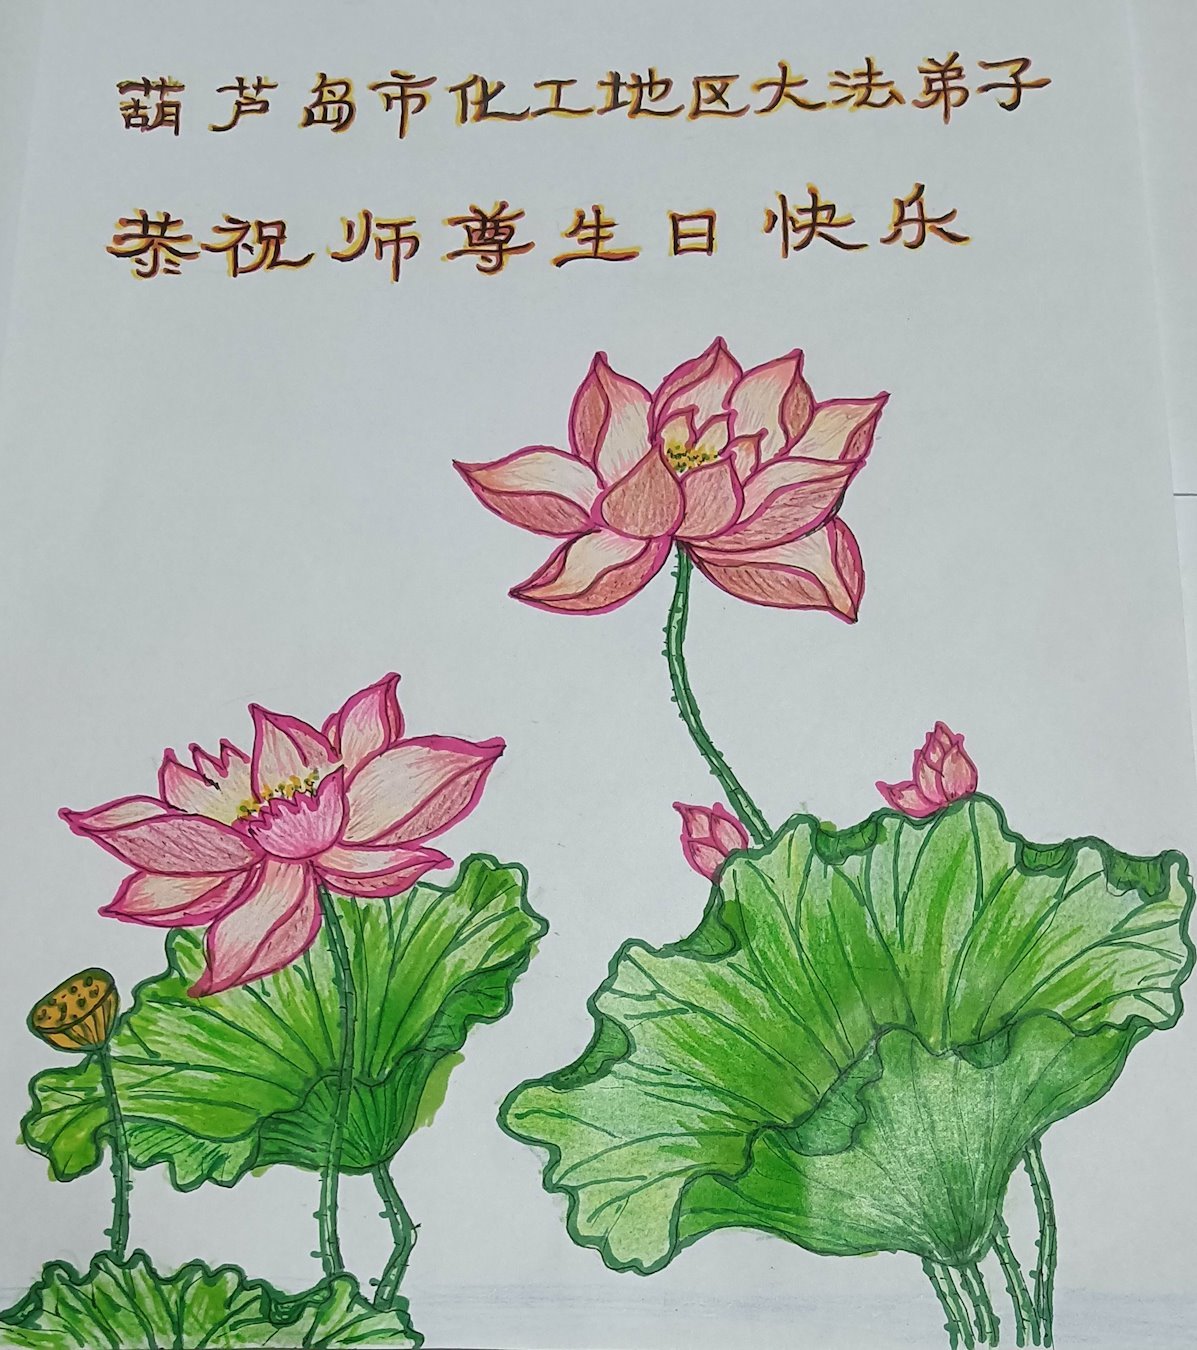 葫芦岛市化工地区大法弟子
恭祝师尊生日快乐